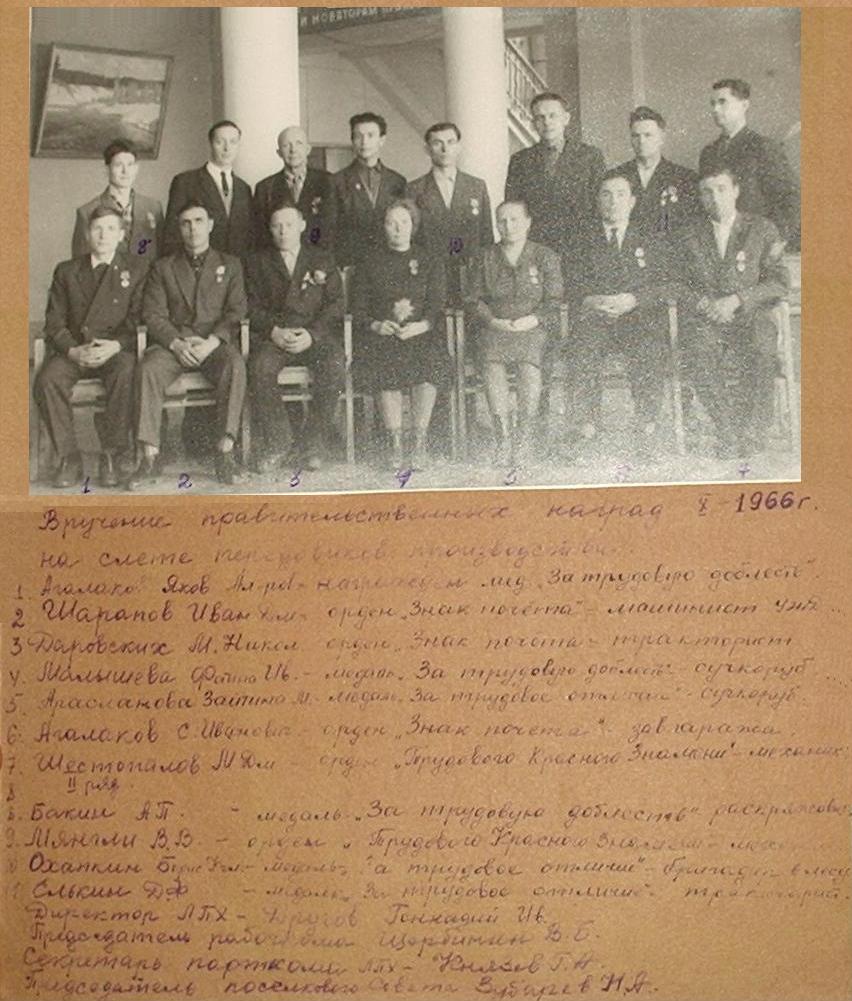 И НОВАТОРАМ
8 9 10 11
1 2 3 4 5 7
Вручение правительственных наград X - 1966 г.
на слете передовиков производства.
1. Агалаков Яков награжден мед. „За трудовую доблесть".
2 Шарапов Иван орден „Знак почета" - машинист
3 Даровских М. Никол орден „Знак почета - тракторист
4. Малышева Ив. - медаль „За трудовую доблесть - сучкоруб
5. Арасланова М. - медаль „За трудовое отличие" - сучкоруб.
6. Агалаков С. Иванович - орден „Знак почета" - зав гаража
7. Шестопалов М Дм - орден „Трудового Красного Знамени" - механик
8 II ряд.
8. Бакин А П. - медаль „За трудовую доблесть"
9. Мянгли В. В. - орден „Трудового Красного Знамени -
10 Охапкин Борис - медаль „За трудовое отличие" - бригадир
11 Елькин Д Ф - медаль „За трудовое отличие"
Директор ЛПХ - Геннадий Ив.
Председатель рабочкома Щербинин В. Б.
Секретарь парткома ЛПХ - Князев Г. А.
Председатель поселкового Совета Зубарев Н. А.